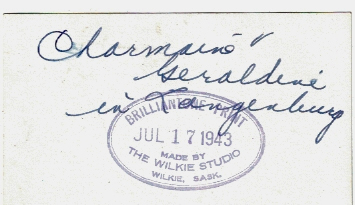 Charmaine "
Geraldine
in Langenburg
BRILLIANTONE PRINT
JUL 17 1943
MADE BY
THE WILKIE STUDIO
WILKIE, SASK.